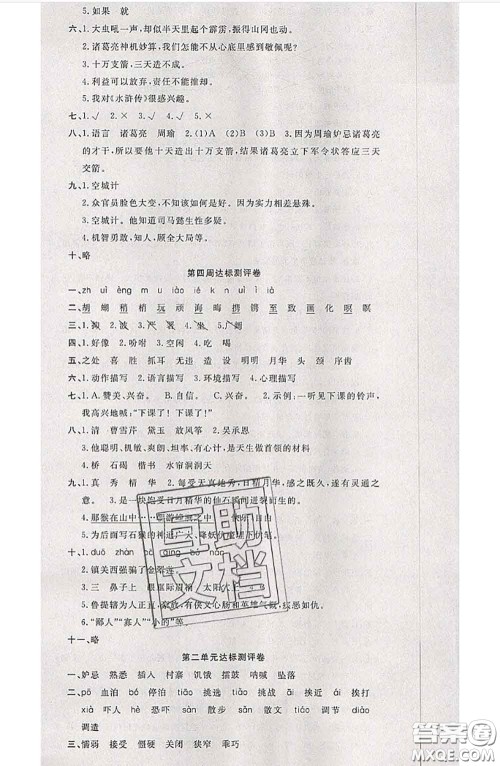 5. 如果 就
六、1. 大虫吼一声,却似半天里起个霹雳,振得山冈也动。
2. 诸葛亮神机妙算,我们怎能不从心底里感到敬佩呢?
3. 十万支箭,三天造不成。
4. 利益可以放弃,责任不能推卸。
5. 我对《水浒传》很感兴趣。
七、1. √ 2. × 3. √ 4. √ 5. ×
八、1. 语言 诸葛亮 周瑜 2. (1)A (2)B (3)B 3. 因为周瑜妒忌诸葛亮
的才干,所以要他十天造出十万支箭,结果诸葛亮立下军令状答应三天
交箭。
九、1. 空城计
2. 众官员脸色大变,不知该如何是好。因为实力相差悬殊。
3. 空城计。他知道司马懿生性多疑。
4. 机智勇敢,知人,顾全大局等。
十、略
第四周达标测评卷
一、zhuì èng mu iào iè k n u ì l iè
三、1. 2. 3. √ 4. √ 5.
四、1. 好像 2. 吩咐 3. 空闲 4. 吃 喝
五、之处 喜 胜 抓耳 无违 造 设 明明 月华 头 颈 序齿
六、1. 动作描写 2. 语言描写 3. 环境描写 4. 心理描写
七、1. A. 赞美、兴奋。 B. 自信。 C. 兴奋。 2. 示例:一听见下课的铃声,
我高兴地喊:“下课了!下课了!”
八、1. 清 曹雪芹 黛玉 放风筝 2. 吴承恩
3. 他聪明、机敏、爽朗、坦率、有心计,是天生做首领的材料
4. 桥 石碣 楷书 水帘洞洞天
九、1. 真 秀 精 华 2. 每受天真地秀,日精月华,感之既久,遂有灵通之
意。 3.
4. 那猴在山中
5. 为后面写石猴的神通广大、降妖伏魔埋下伏笔。
十、1. duō zhàn
2. 镇关西强骗了金翠莲。
3. 三 鼻子上 眼眶际眉梢 太阳
5. 鲁提辖为人正直,豪放,有侠义心肠和英雄气概,疾恶如仇。
6. “鄙人”“寡人”“小的”等
十一、略
第二单元达标测评卷
一、妒忌 熟悉 插入 村寨 饥饿 擂鼓 呐喊 坠落
二、pō 血泊 bó 停泊 tiāo 挑选 tiǎo 挑战 āi 挨近 ái 挨打
xià 吓人 hè 恐吓 sàn 散步 sǎn 散文 tiáo 调节 diào
调遣
三、懦弱 接受 倔强 关闭 狭窄 乖巧
互助文档
答案圈
MXQE.COM